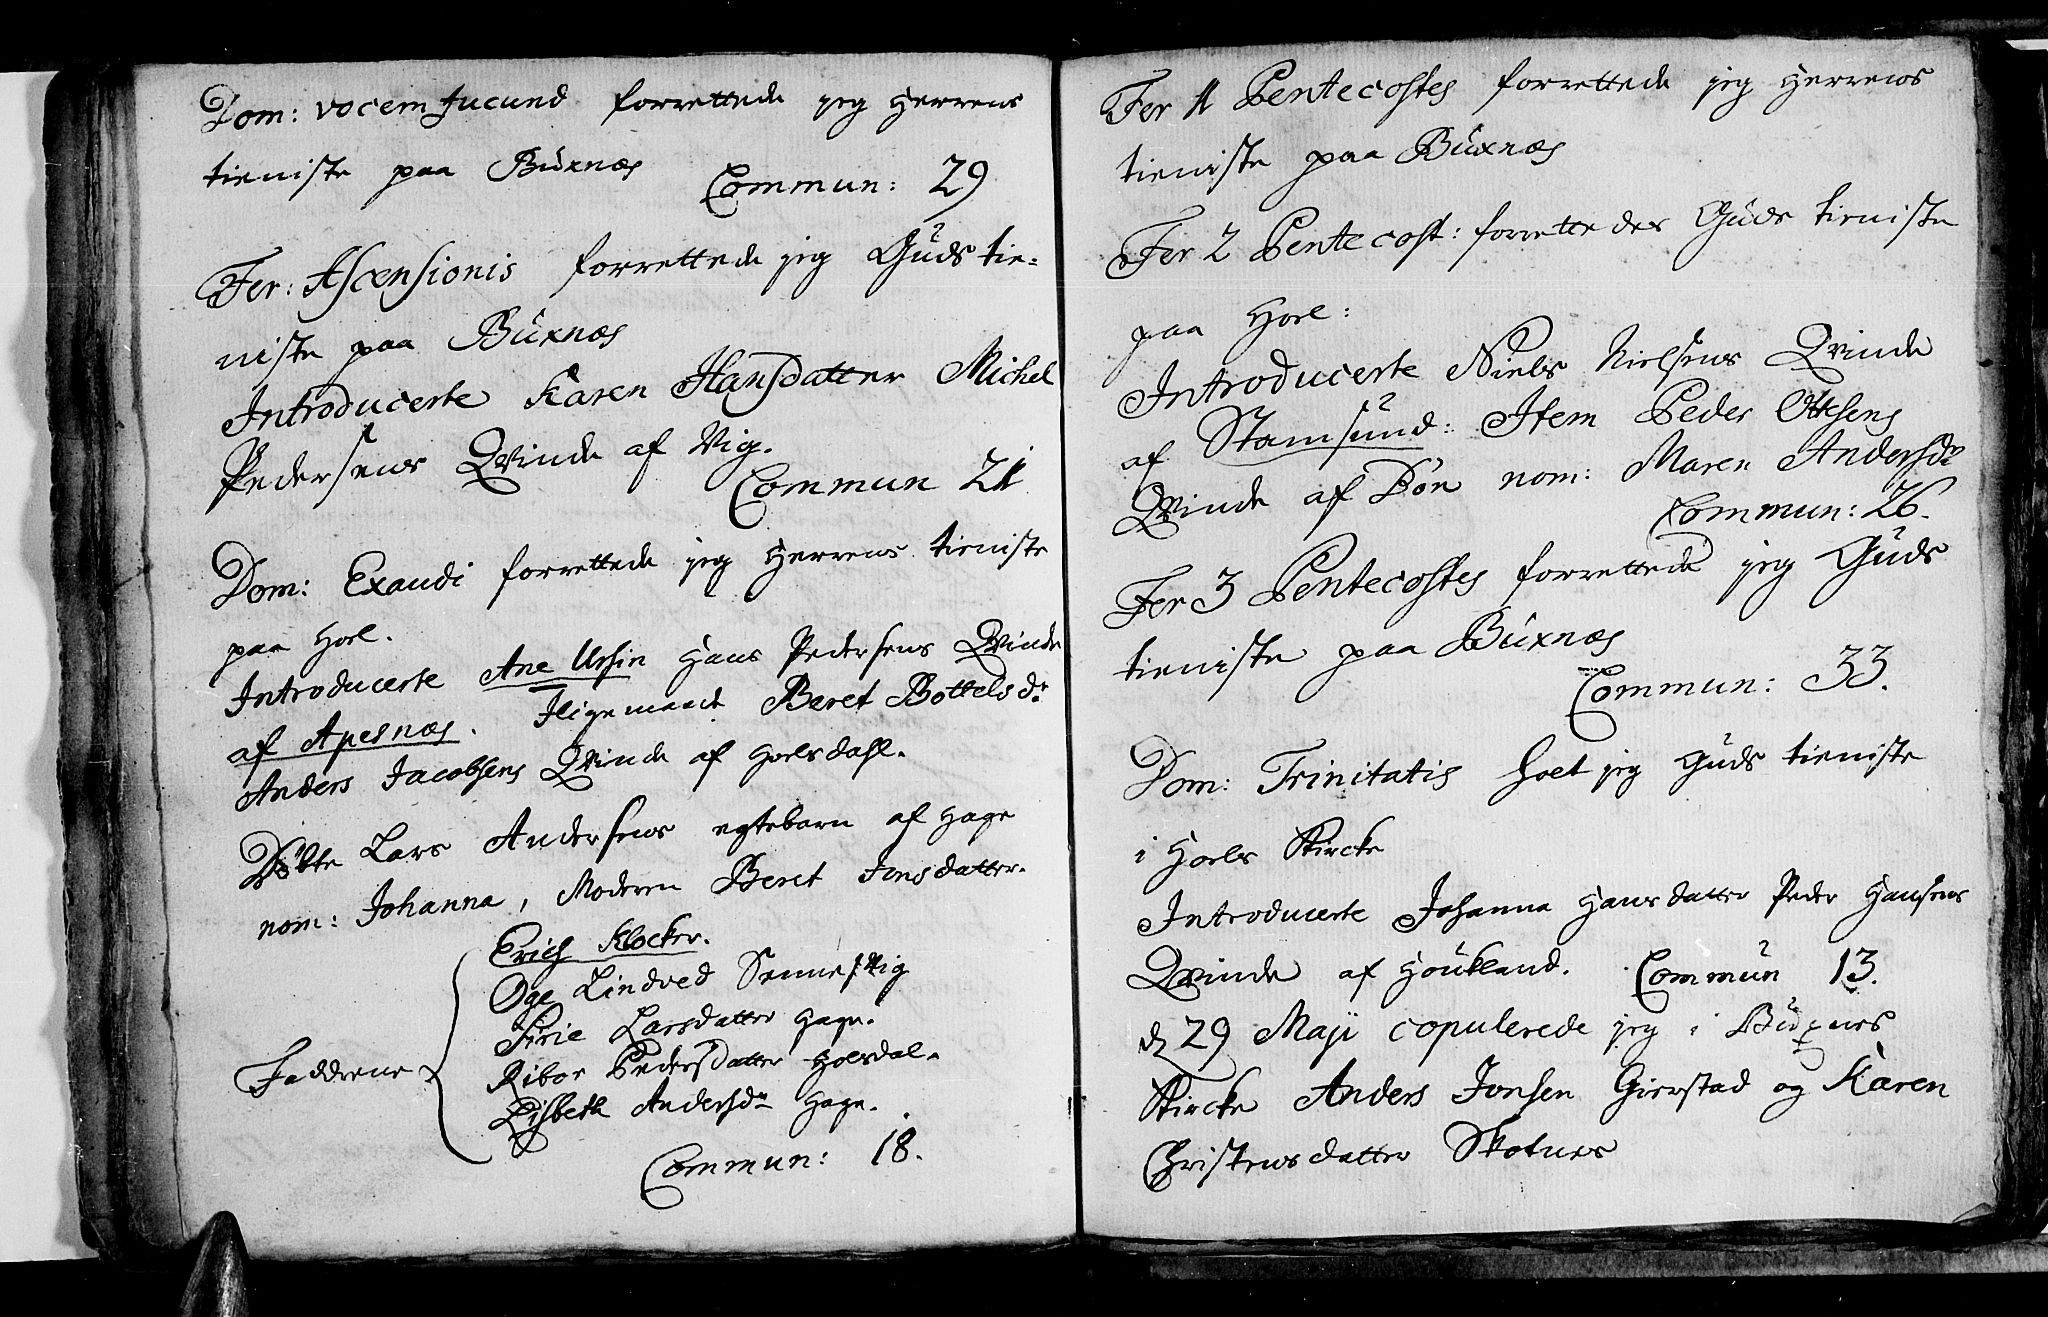 Dom: vocem Jucund forrettede jeg Herrens
tieniste paa Buxnæs
Commun: 29
Fer: Ascensionis forrettede jeg Guds tie=
niste paa Buxnæs
Introducerte Karen Hansdatter Michel
Pedersens Qvinde af Vig.
Commun 21
Dom: Exaudi forrettede jeg Herrens tieniste
paa Horl.
Introducerte Ane Ursin Hans Pedersens Qvinde
af Apesnæs. Iligemaade Beret Bottelsdr
Anders Jacobsens Qvinde af Hoelsdahl.
Döbte Lars Andersens egtebarn af Hage
nom: Johanna, Moderen Beret Jonsdatter.
Erich Klocker.
Oge Lindved Sennesvig
Sirie Larsdatter Hage.
Faddrene
Ribor Pedersdatter Holsdal.
Lisbeth Andersdr Hage.
Commun: 18.
Fer 1 Pentecostes forrettede jeg Herrens
tieniste paa Buxnæs
Fer 2 Pentecost: forrettedes Guds tieniste
paa Horl:
Introducerte Niels Nielsens Qvinde
af Stamsund: Item Peder Ottesens
Qvinde af Dön nom: Maren Andersdr
Commun: 26.
Fer 3 Pentecostes forrettede jeg Guds
tieniste paa Buxnæs
Commun: 33.
Dom: Trinitatis holt jeg Guds tieniste
i Hoels Kircke
Introducerte Johanna Hansdatter Peder Hansens
Qvinde af Houkland. Commun 13.
d 29 Maji copulerede jeg i Buxnes
Kircke Anders Jonsen Gierstad og Karen
Christensdatter Skotnes